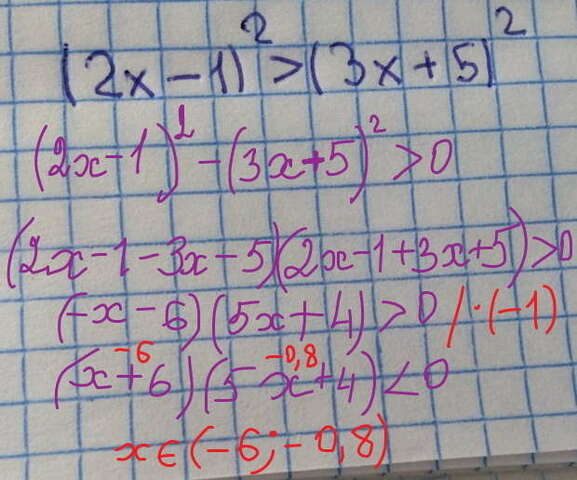 (2x-1)²>(3x+5)²
(2x-1)²-(3x+5)²>0
(2x-1-3x-5)(2x-1+3x+5)>0
(-x-6)(5x+4)>0 /·(-1)
-6 -0,8
(x+6)(5x+4)<0
x∈(-6;-0,8)